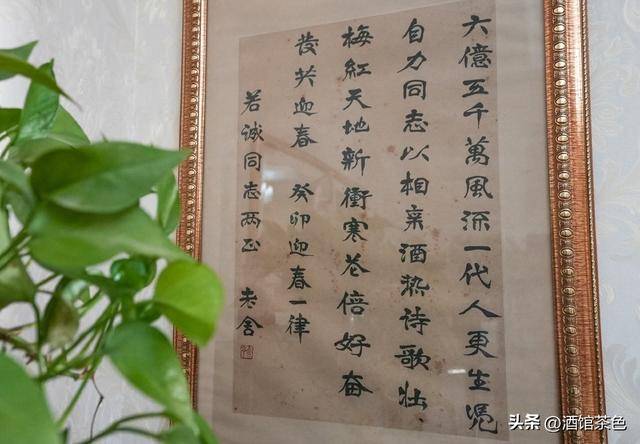 六億五千萬風流一代人更生憑
自力同志以相亲酒热诗歌壮
梅紅天地新衝寒花倍好奋
發共迎春 癸卯迎春一律
若诚同志两正 老舍
头条 @酒馆茶色